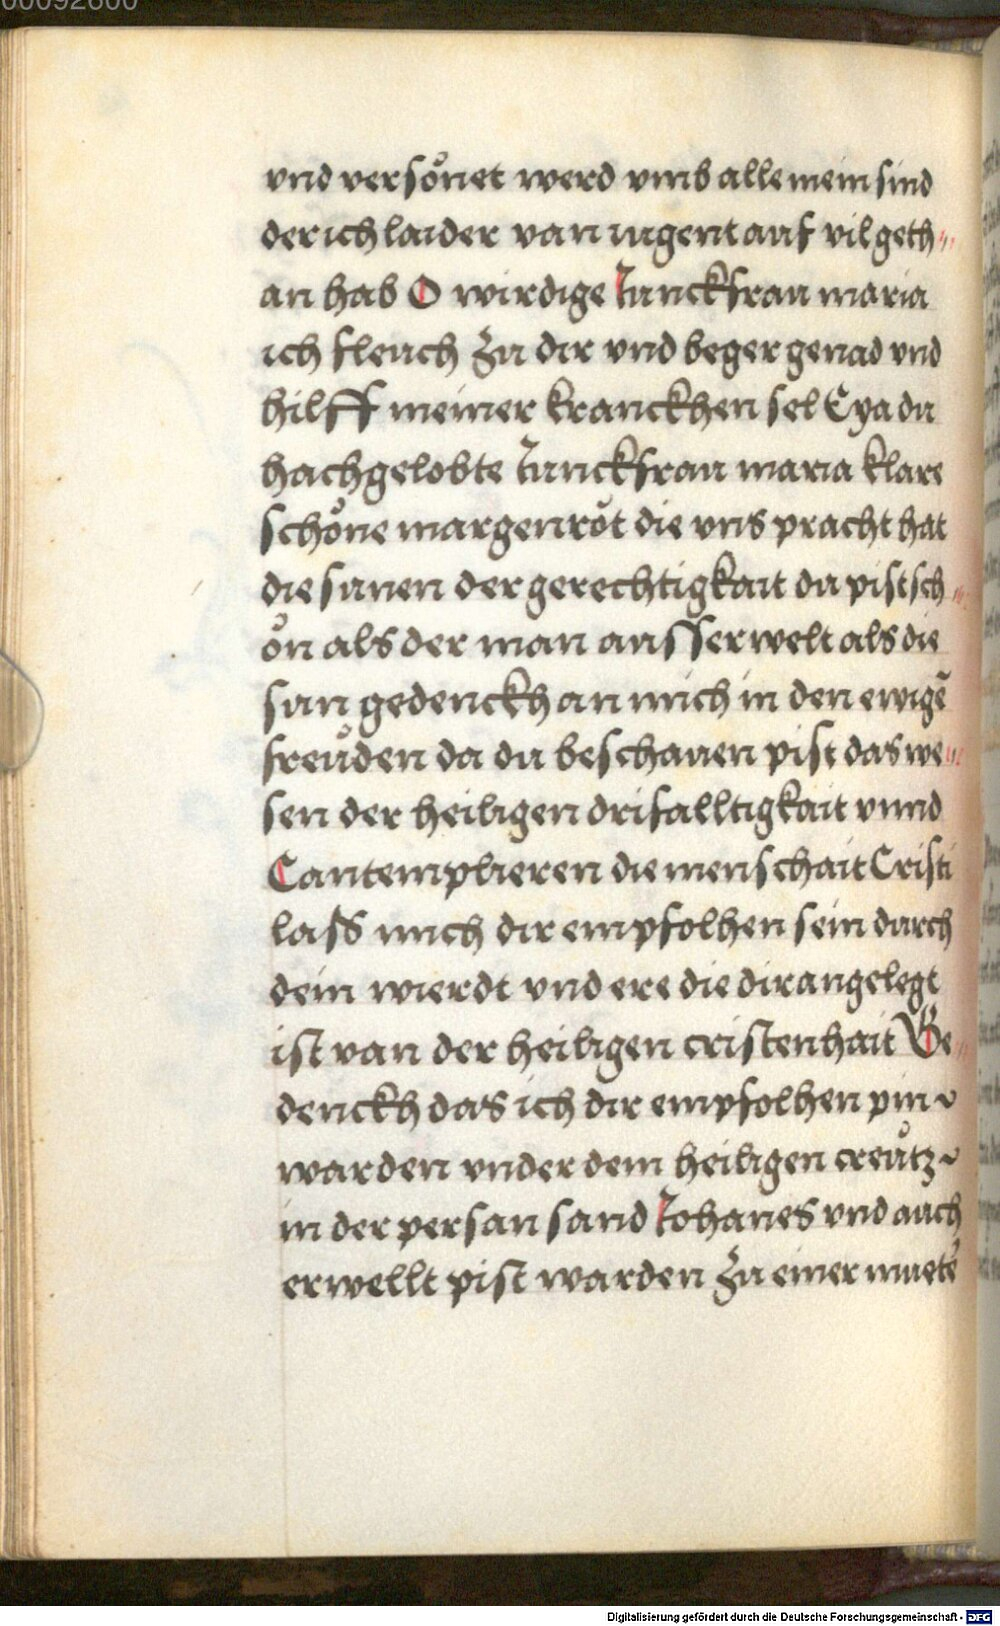 00092600
vnd versoͤnet werd vmb alle mein sind
der ich laider van iugent auf vil geth⸗
an hab O wirdige Junckfrau maria
ich fleuch zu dir vnd beger genad vnd
hilff meiner kranckhen sel Eya du
hachgelobte Junckfrau maria klare
schoͤne margenroͤt die vns pracht hat
die sunen der gerechtigkait du pist sch⸗
oͤn als der man ausserwelt als die
sun gedenckh an mich in den ewigē
freuͤden da du beschauen pist das we⸗
sen der heiligen drifalltigkait vnnd
Cantemplieren die menschait Cristi
lass mich dir empfolhen sein durch
dein wierdt vnd ere die dir angelegt
ist van der heiligen cristenhait Ge⸗
denckh das ich dir empfolhen pin
warden vnder dem heiligen creuͤtz
in der persan sand Johanes vnd auch
erwellt pist warden zu einer muetē
Digitalisierung gefördert durch die Deutsche Forschungsgemeinschaft - DFG